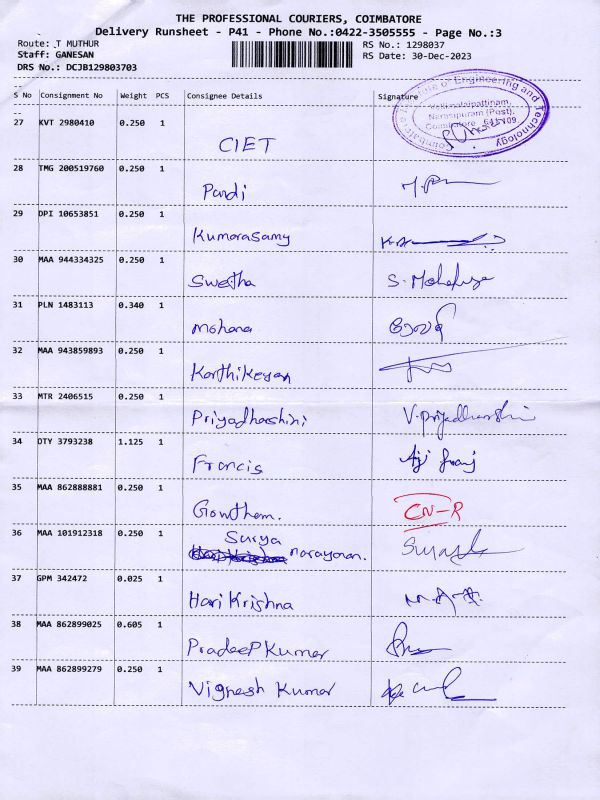 THE PROFESSIONAL COURIERS, COIMBATORE
Delivery Runsheet - P41 - Phone No.:0422-3505555 - Page No.:3
Route: T MUTHUR
RS No.: 1298037
Staff: GANESAN
RS Date: 30-Dec-2023
DRS No.: DCJB129803703
S No Consignment No Weight PCS Consignee Details Signature
Institute of Engineering and Technology
Vellimalaipattinam,
Narasipuram (Post),
27 KVT 2980410 0.250 1
CIET
28 TMG 200519760 0.250 1
Pandi
29 DPI 10653851 0.250 1
Kumarasamy
30 MAA 944334325 0.250 1
Swetha S.
31 PLN 1483113 0.340 1
Mohana
32 MAA 943859893 0.250 1
Karthikeyan
33 MTR 2406515 0.250 1
Priyadharshini V.Priyadharshini
34 OTY 3793238 1.125 1
Francis
35 MAA 862888881 0.250 1
Gowtham. CN-R
36 MAA 101912318 0.250 1
Surya
narayanan.
37 GPM 342472 0.025 1
Hari Krishna
38 MAA 862899025 0.605 1
Pradeep Kumar
39 MAA 862899279 0.250 1
Vignesh Kumar